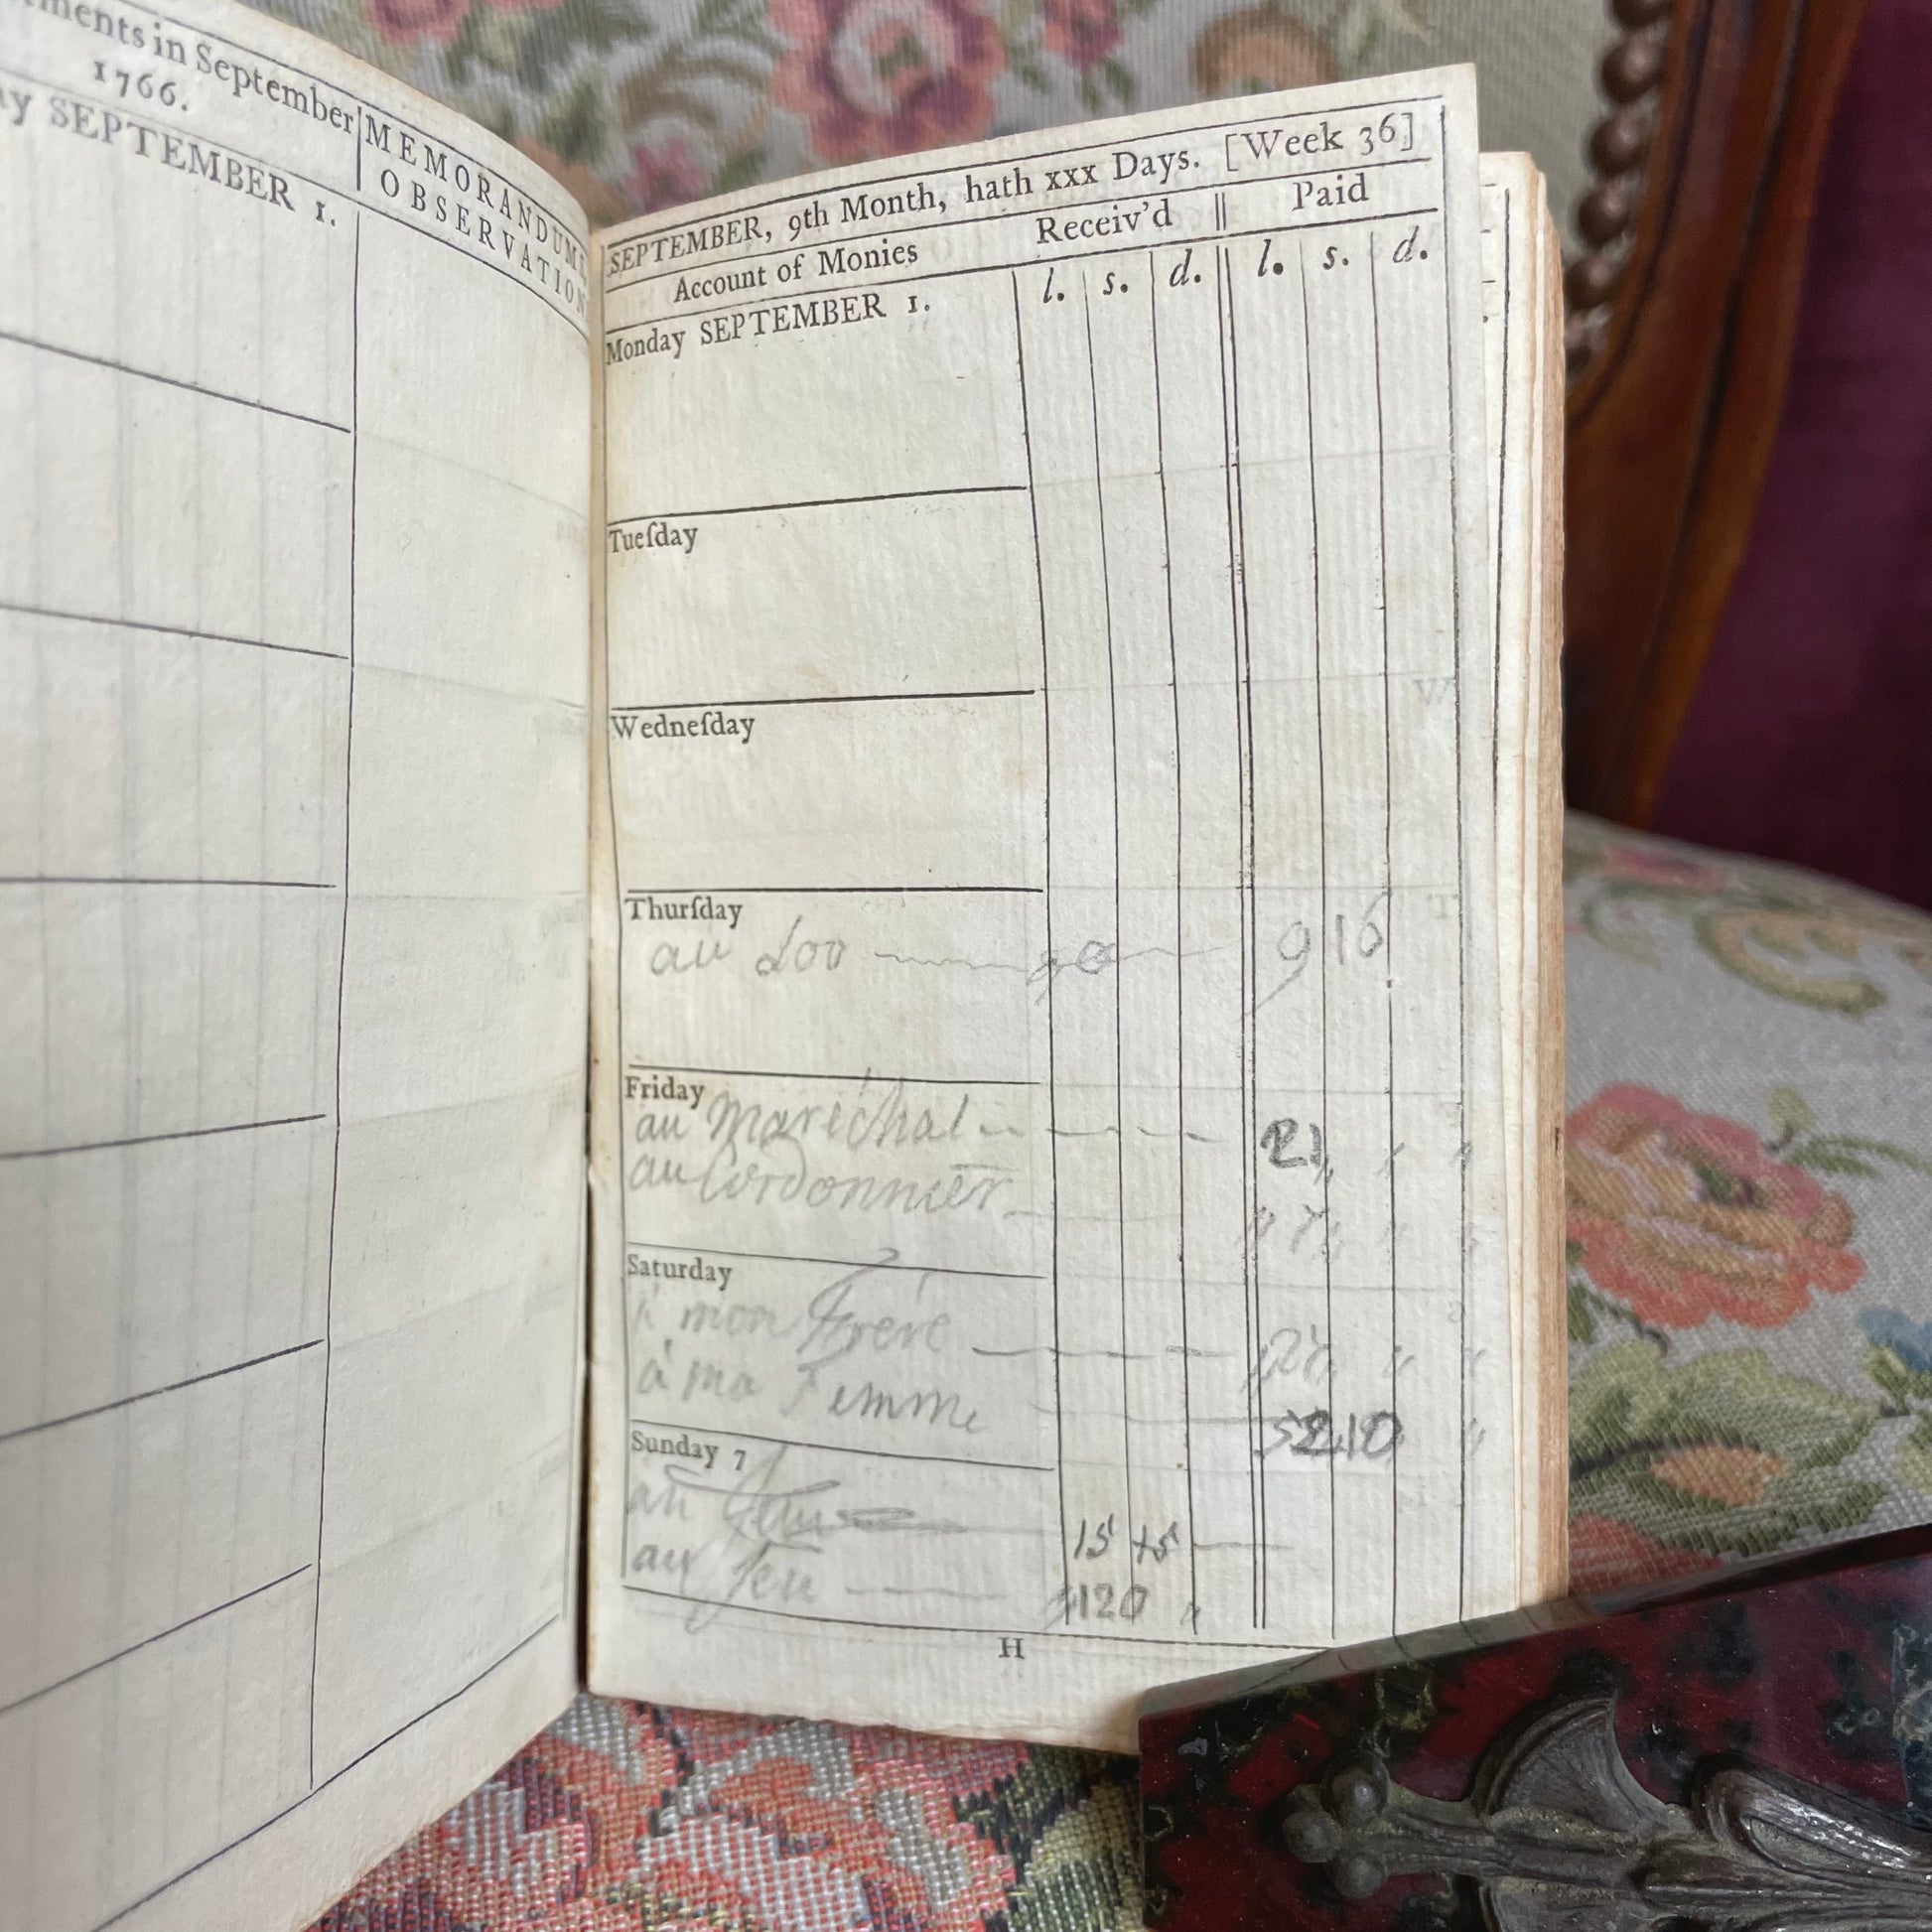 ments in September
1766.
ay SEPTEMBER 1.
MEMORANDUMS
OBSERVATION
SEPTEMBER, 9th Month, hath xxx Days. [Week 36]
Account of Monies Receiv'd Paid
l. s. d. l. s. d.
Monday SEPTEMBER 1.
Tueſday
Wedneſday
Thurſday
au Loo 9 16
Friday
au Maréchal 21
au Cordonnier
Saturday
à mon Frére
à ma Femme 5210
Sunday 7
au Jeu 15 15
au Jeu 120
H